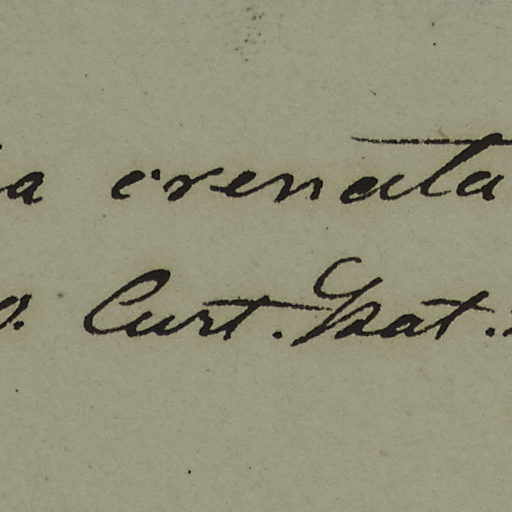 a crenata
Curt. Gaat.